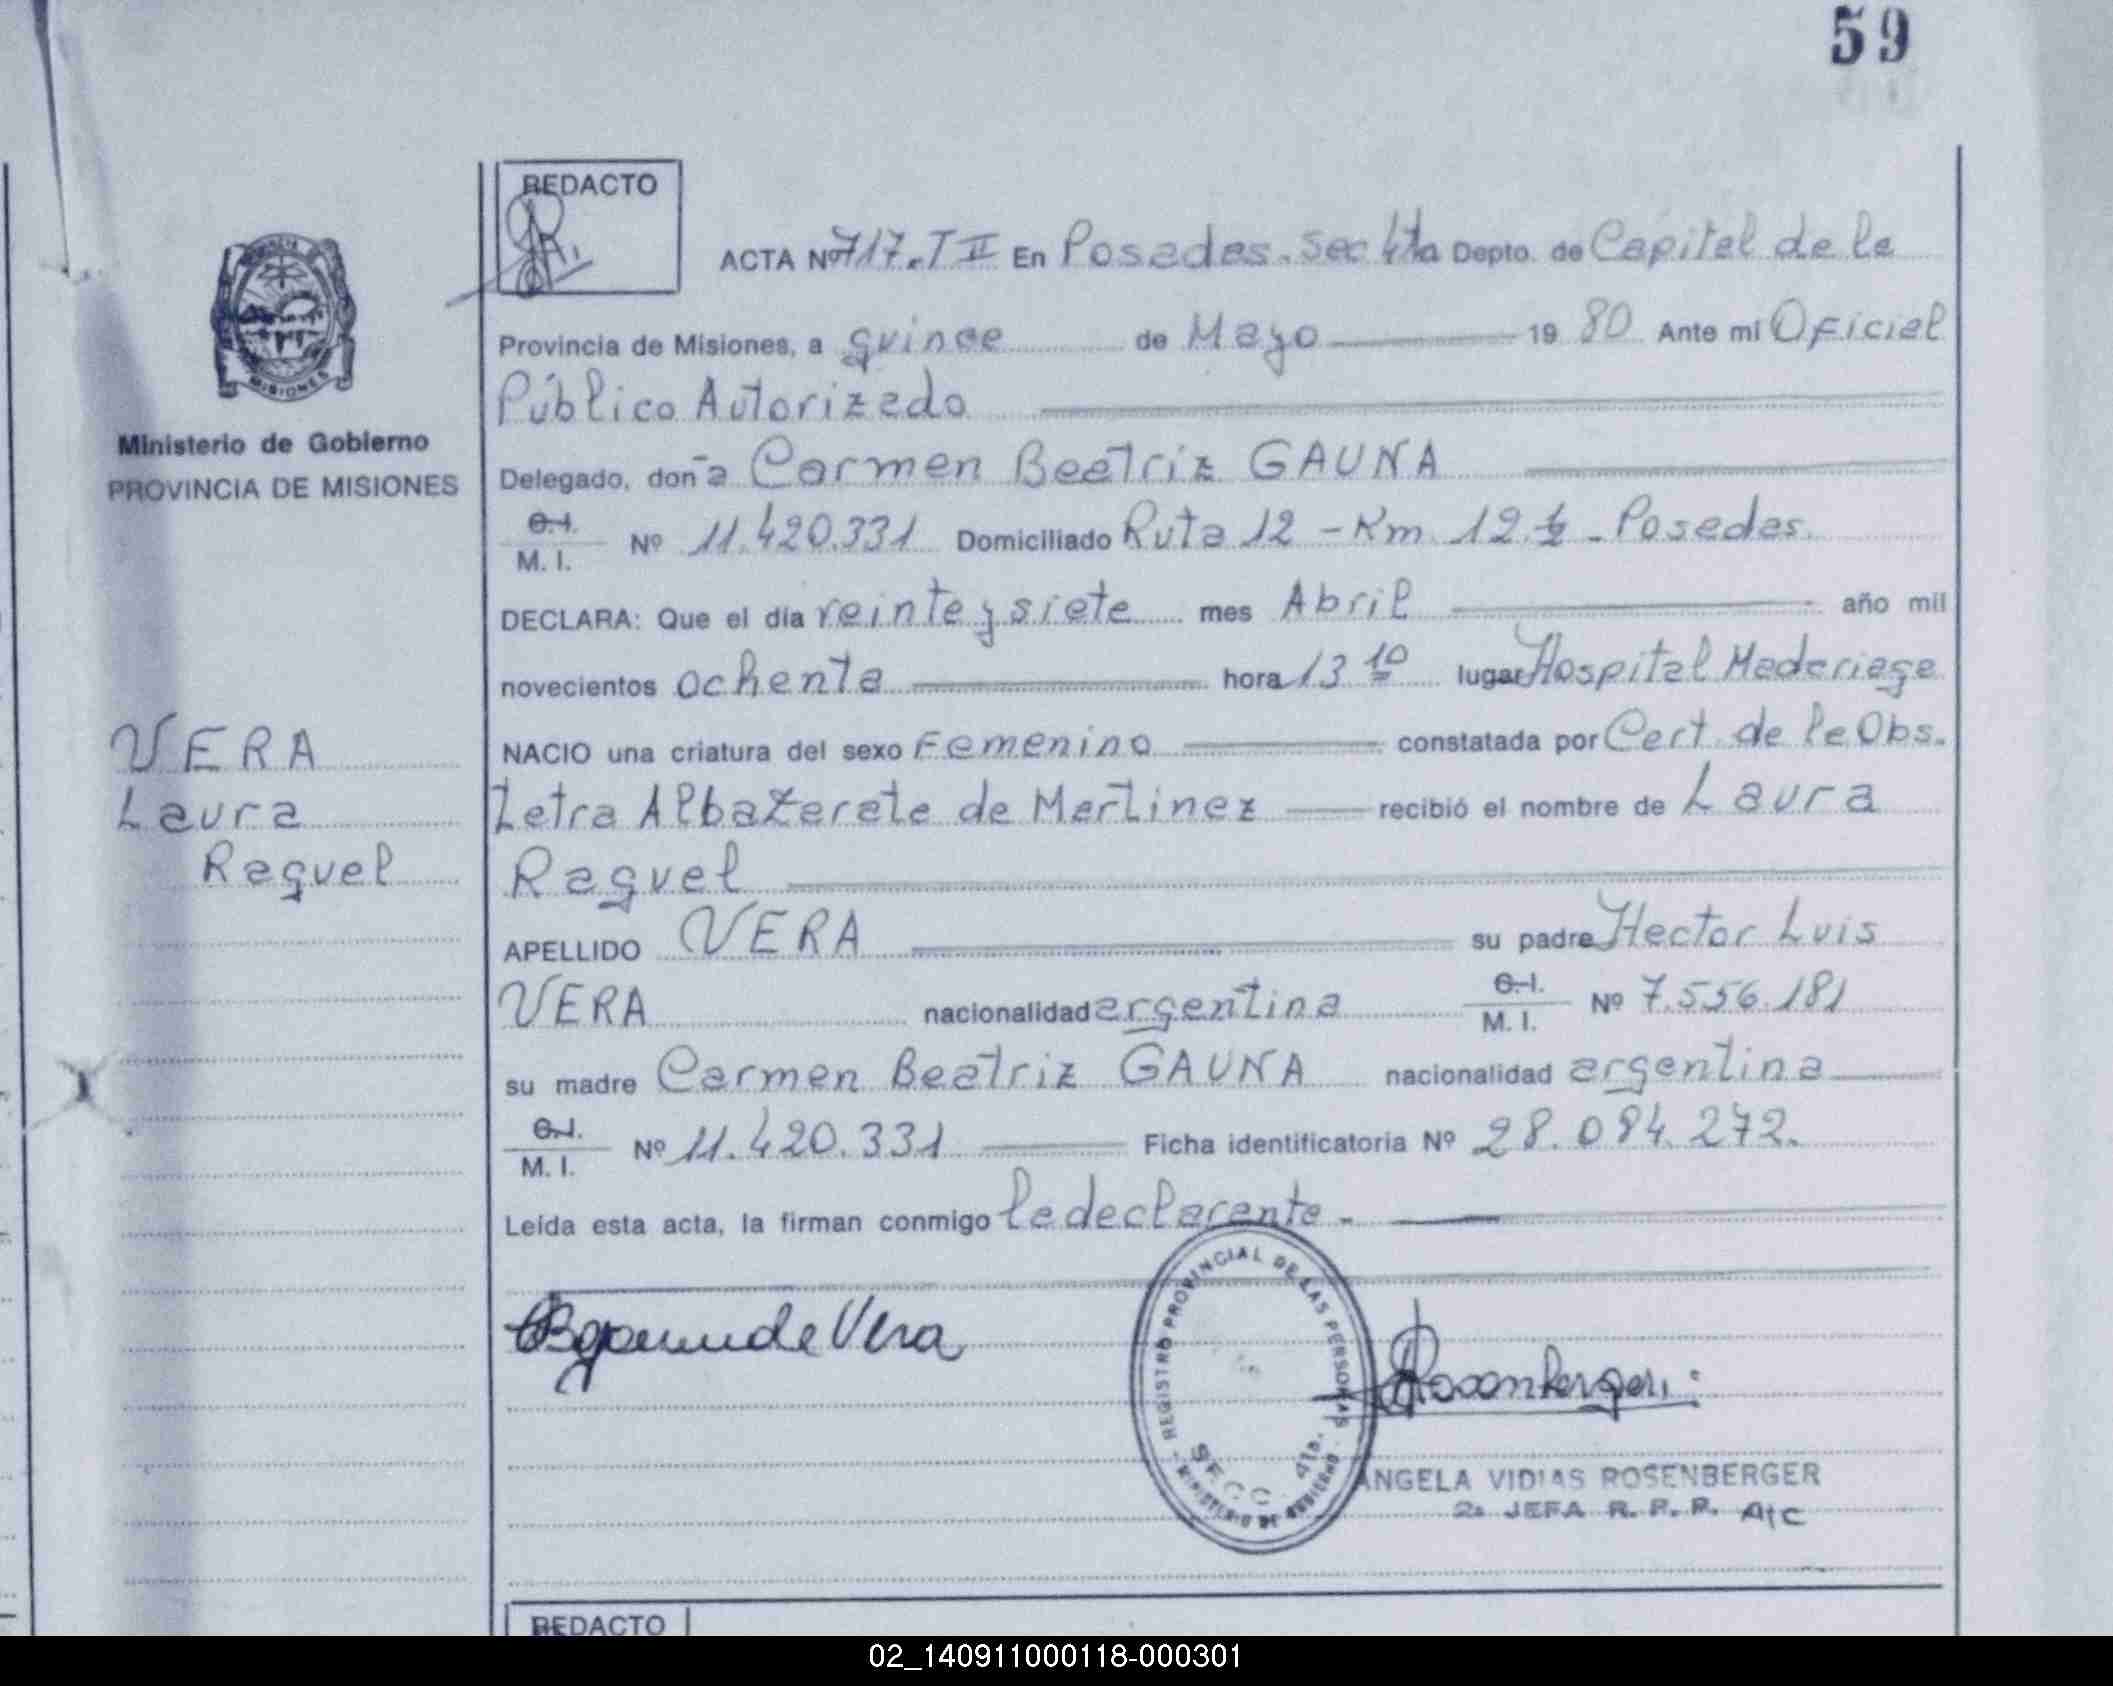 59
REDACTO
MISIONES
Ministerio de Gobierno
PROVINCIA DE MISIONES
VERA
Laura
Raquel
ACTA Nº 717. T II En Posadas. Sec 4ta Depto. de Capital de la
Provincia de Misiones, a quince de Mayo 19 80 Ante mi Oficial
Público Autorizado
Delegado, doña Carmen Beatriz GAUNA
C.I. M. I. Nº 11.420.331 Domiciliado Ruta 12 - Km 12 ½ - Posadas.
DECLARA: Que el día veinte y siete mes Abril año mil
novecientos ochenta hora 13 10 lugar Hospital Madariaga
NACIO una criatura del sexo Femenino constatada por Cert. de la Obs.
Letra Alba Zarate de Martinez recibió el nombre de Laura
Raquel
APELLIDO VERA su padre Hector Luis
VERA nacionalidad argentina C.I. M. I. Nº 7.556.181
su madre Carmen Beatriz GAUNA nacionalidad argentina
C.I. M. I. Nº 11.420.331 Ficha identificatoria Nº 28.084.272.
Leída esta acta, la firman conmigo la declarante.-
de Vera
REGISTRO PROVINCIAL DE LAS PERSONAS
SECC. 4ta.
MINISTERIO DE GOBIERNO
Rosenberger
ANGELA VIDIAS ROSENBERGER
2a JEFA R. P. P. A/C
REDACTO
02_140911000118-000301